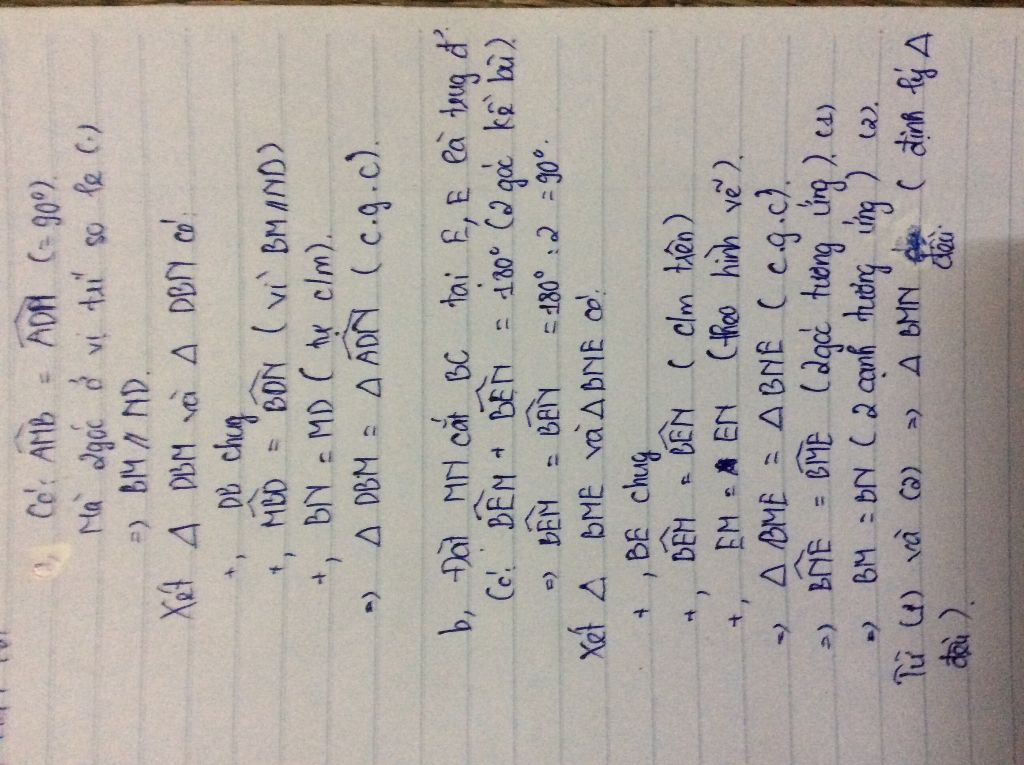 a, Có: AMB = ADN (= 90°).
Mà 2 góc ở vị trí so le (.)
=> BM // ND.
Xét Δ DBM và Δ DBN có:
+, DB chug
+, MBD = BDN (vì BM // ND)
+, BN = MD (tự c/m).
=> Δ DBM = Δ ADN (c.g.c).
b, Đặt MN cắt BC tại E, E là trug đ'.
Có: BEM + BEN = 180° (2 góc kề bù).
=> BEM = BEN = 180° : 2 = 90°.
Xét Δ BME và Δ BNE có:
+, BE chug
+, BEM = BEN (c/m trên)
+, EM = EN (theo hình vẽ).
=> Δ BME = Δ BNE (c.g.c).
=> BNE = BME (2 góc tương ứng). (1)
=> BM = BN (2 cạnh tương ứng) (2).
Từ (1) và (2) => Δ BMN đều (định lý Δ
đều).